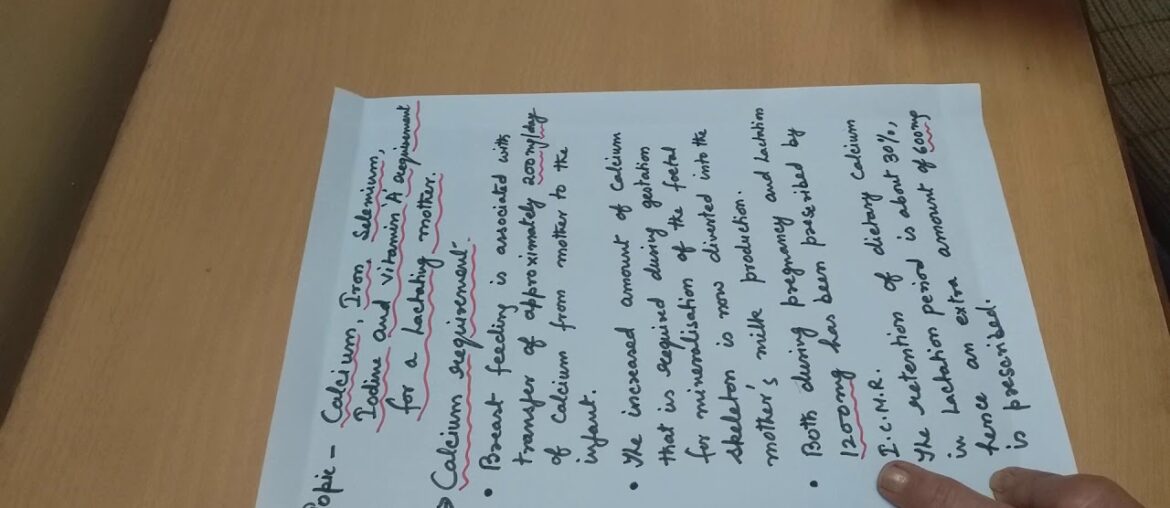 Topic - Calcium, Iron, Selemium,
Iodine and vitamin 'A' requirement
for a Lactating mother.
Calcium requirement-
• Breast feeding is associated with
transfer of approximately 200mg/day
of Calcium from mother to the
infant.
• The increased amount of Calcium
that is required during gestation
for mineralisation of the foetal
skeleton is now diverted into the
mother's milk production.
• Both during pregnancy and Lactation
1200mg has been prescribed by
I.C.M.R.
The retention of dietary Calcium
in Lactation period is about 30%,
hence an extra amount of 600mg
is prescribed.